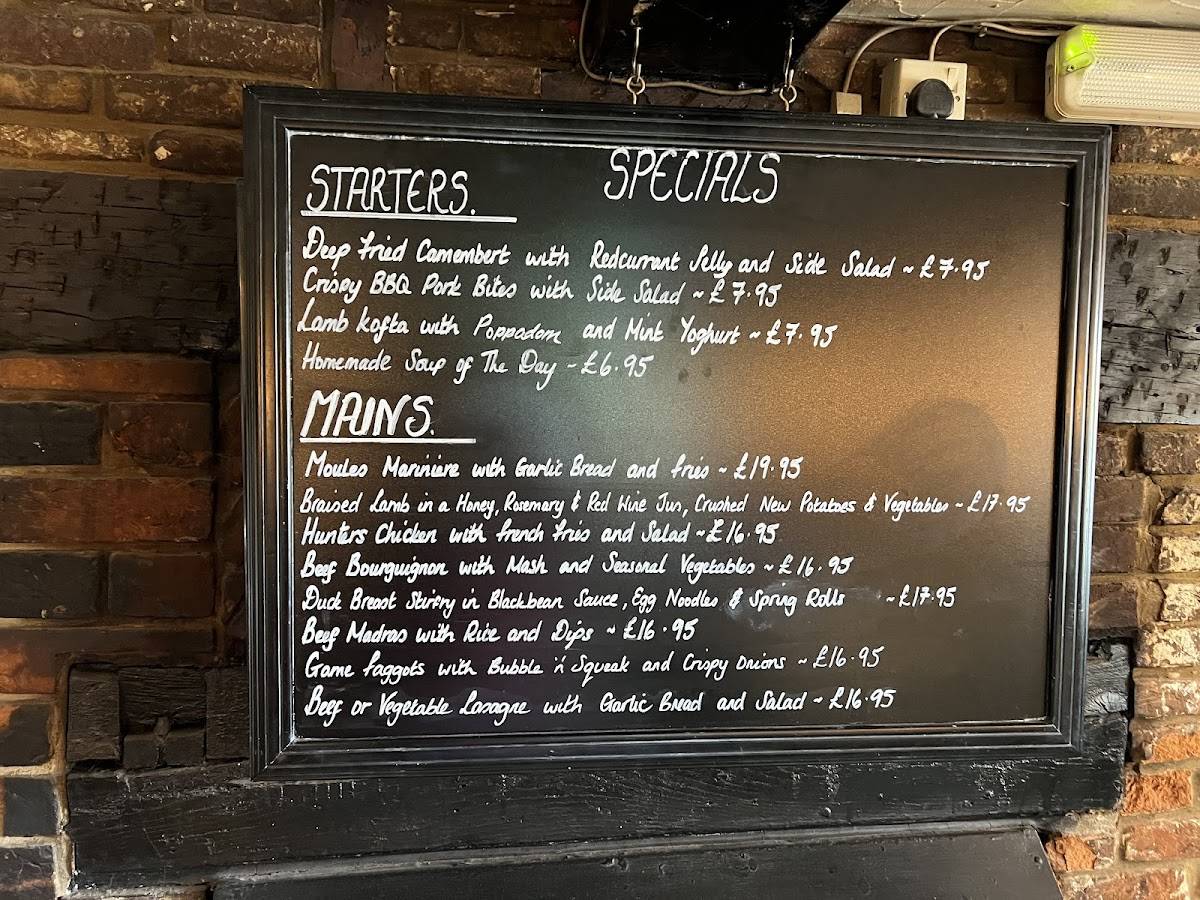 SPECIALS
STARTERS.
Deep fried Camembert with Redcurrant Jelly and Side Salad ~ £7.95
Crispy BBQ Pork Bites with Side Salad ~ £7.95
Lamb Kofta with Poppadom and Mint Yoghurt ~ £7.95
Homemade Soup of The Day - £6.95
MAINS.
Moules Marinière with Garlic Bread and fries ~ £19.95
Braised Lamb in a Honey, Rosemary & Red Wine Jus, Crushed New Potatoes & Vegetables ~ £17.95
Hunters Chicken with french fries and Salad ~ £16.95
Beef Bourguignon with Mash and Seasonal Vegetables ~ £16.95
Duck Breast Stirfry in Blackbean Sauce, Egg Noodles & Spring Rolls ~ £17.95
Beef Madras with Rice and Dips ~ £16.95
Game faggots with Bubble 'n' Squeak and Crispy Onions ~ £16.95
Beef or Vegetable Lasagne with Garlic Bread and Salad ~ £16.95